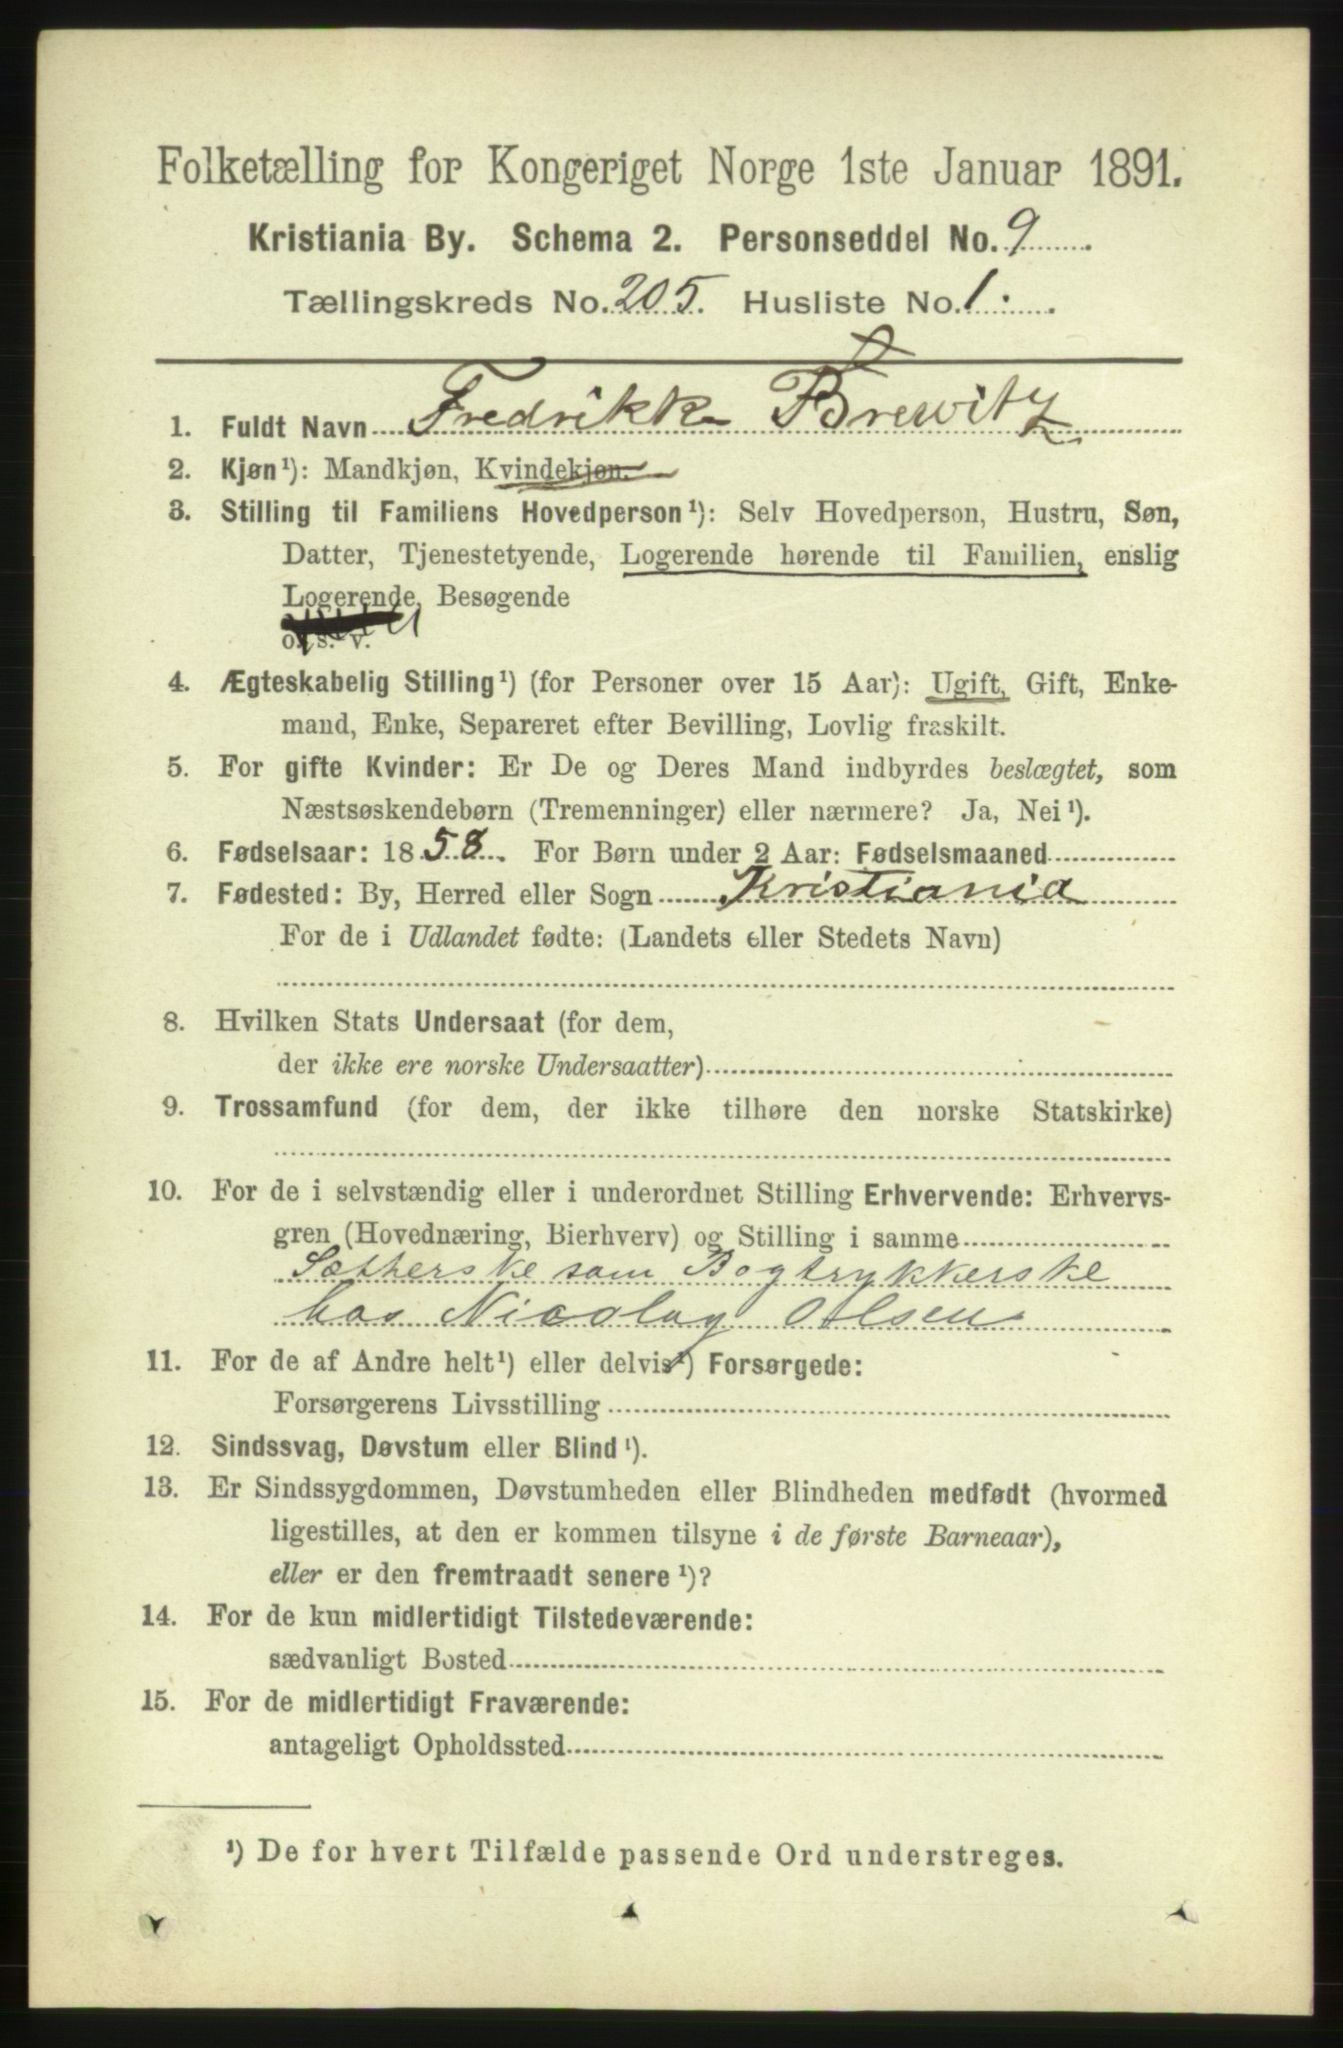 Folketælling for Kongeriget Norge 1ste Januar 1891.
Kristiania By. Schema 2. Personseddel No. 9
Tællingskreds No. 205. Husliste No. 1.
1. Fuldt Navn Fredrikke Brewitz
2. Kjøn¹): Mandkjøn, Kvindekjøn.
3. Stilling til Familiens Hovedperson¹): Selv Hovedperson, Hustru, Søn,
Datter, Tjenestetyende, Logerende hørende til Familien, enslig
Logerende, Besøgende
o. s. v.
4. Ægteskabelig Stilling¹) (for Personer over 15 Aar): Ugift, Gift, Enke-
mand, Enke, Separeret efter Bevilling, Lovlig fraskilt.
5. For gifte Kvinder: Er De og Deres Mand indbyrdes beslægtet, som
Næstsøskendebørn (Tremenninger) eller nærmere? Ja, Nei¹).
6. Fødselsaar: 1858. For Børn under 2 Aar: Fødselsmaaned
7. Fødested: By, Herred eller Sogn Kristiania
For de i Udlandet fødte: (Landets eller Stedets Navn)
8. Hvilken Stats Undersaat (for dem,
der ikke ere norske Undersaatter)
9. Trossamfund (for dem, der ikke tilhøre den norske Statskirke)
10. For de i selvstændig eller i underordnet Stilling Erhvervende: Erhvervs-
gren (Hovednæring, Bierhverv) og Stilling i samme
Sætherske som Bogtrykkerske
hos Nicolay Olsen
11. For de af Andre helt¹) eller delvis¹) Forsørgede:
Forsørgerens Livsstilling
12. Sindssvag, Døvstum eller Blind¹).
13. Er Sindssygdommen, Døvstumheden eller Blindheden medfødt (hvormed
ligestilles, at den er kommen tilsyne i de første Barneaar),
eller er den fremtraadt senere¹)?
14. For de kun midlertidigt Tilstedeværende:
sædvanligt Bosted
15. For de midlertidigt Fraværende:
antageligt Opholdssted
¹) De for hvert Tilfælde passende Ord understreges.